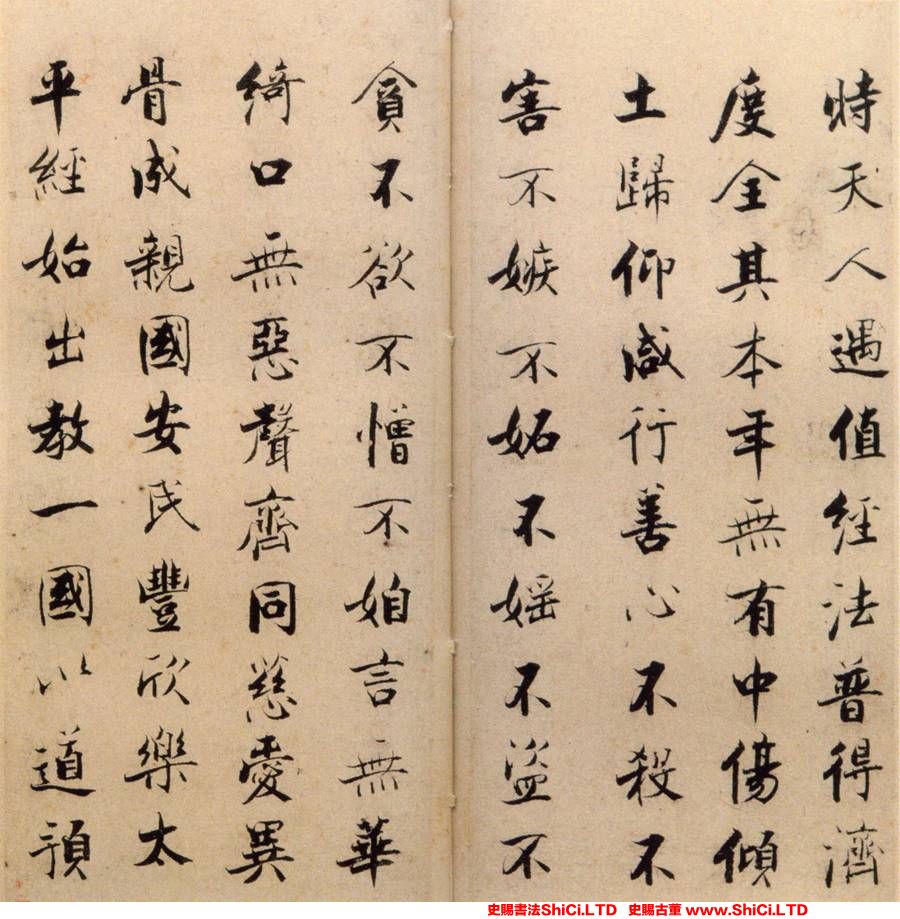 時天人遇值經法普得濟
度全其本年無有中傷傾
土歸仰咸行善心不殺不
害不嫉不妬不婬不盜不
貪不欲不憎不妲言無華
綺口無惡聲齊同慈愛異
骨成親國安民豐欣樂太
平經始出教一國以道預
史賜書法ShiCi.LTD 史賜古董 www.ShiCi.LTD